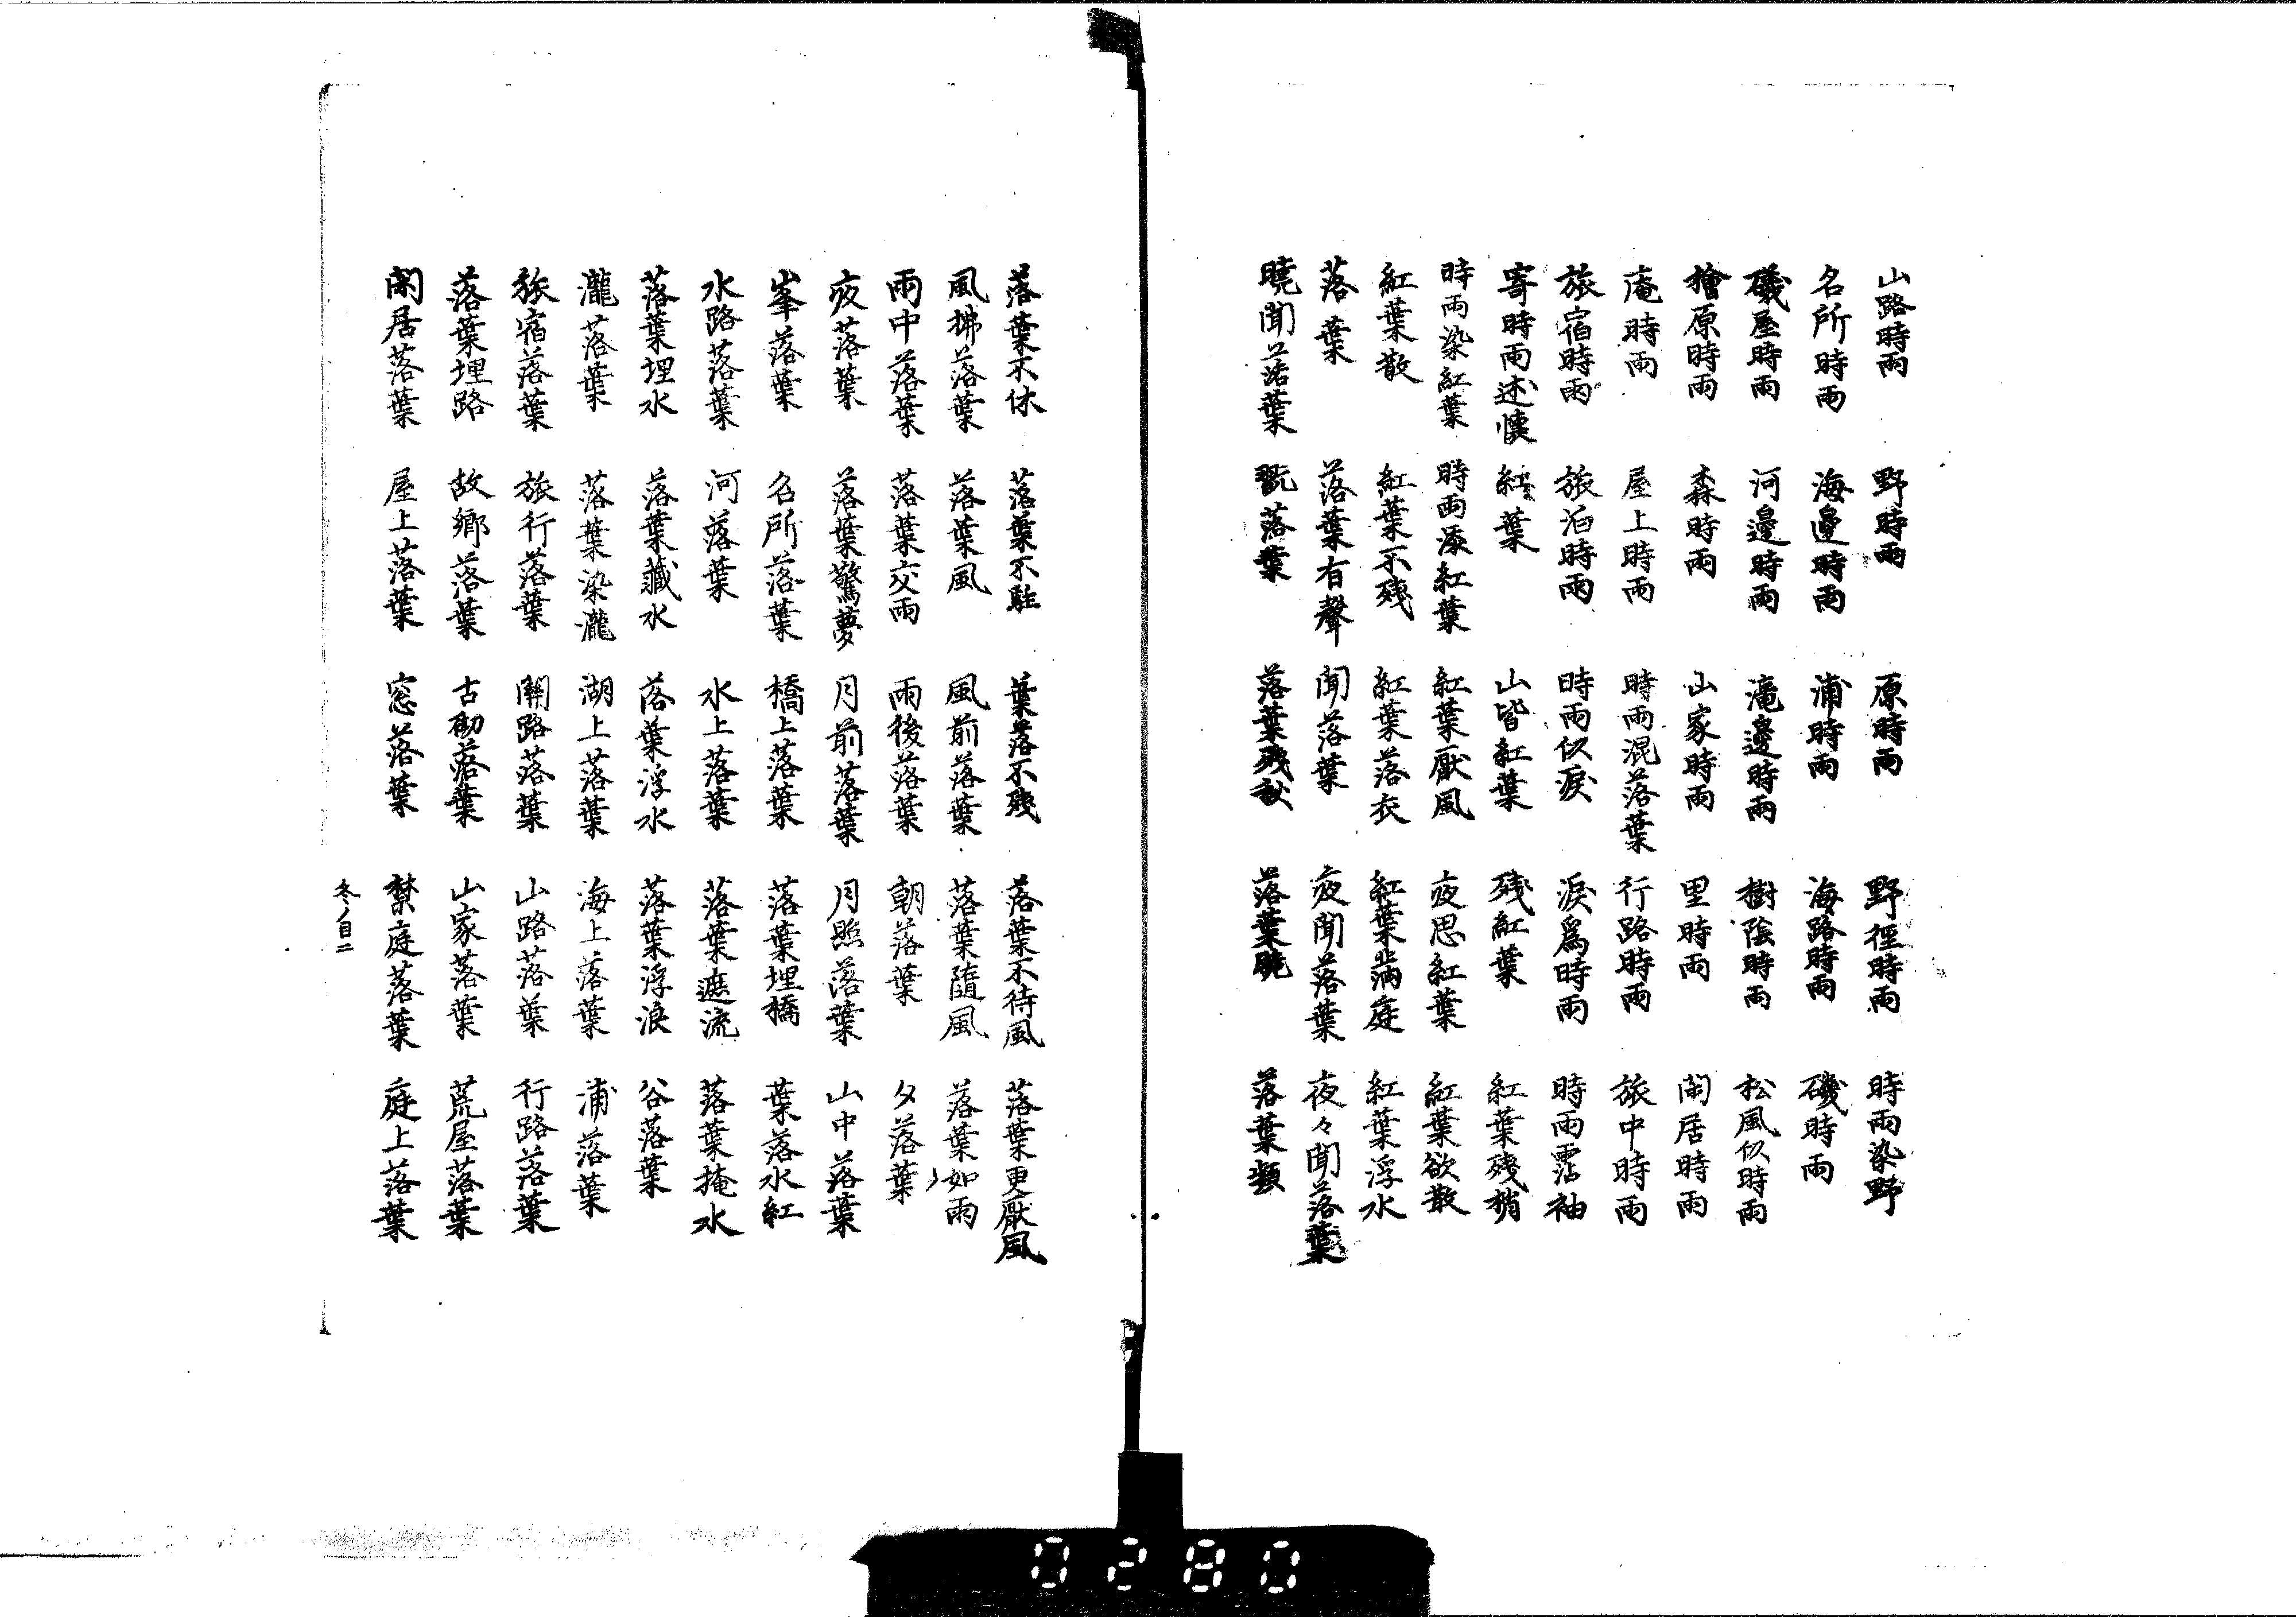 山路時雨 野時雨 原時雨 野徑時雨 時雨染野
名所時雨 海邊時雨 浦時雨 海路時雨 磯時雨
磯屋時雨 河邊時雨 滝邊時雨 樹陰時雨 松風似時雨
檜原時雨 森時雨 山家時雨 里時雨 閑居時雨
庵時雨 屋上時雨 時雨混落葉 行路時雨 旅中時雨
旅宿時雨 旅泊時雨 時雨似涙 涙爲時雨 時雨霑袖
寄時雨述懐 紅葉 山皆紅葉 残紅葉 紅葉残梢
時雨染紅葉 時雨添紅葉 紅葉厭風 夜思紅葉 紅葉欲散
紅葉散 紅葉不残 紅葉落衣 紅葉満庭 紅葉浮水
落葉 落葉有聲 聞落葉 夜聞落葉 夜々聞落葉
曉聞落葉 翫落葉 落葉残秋 落葉曉 落葉類
落葉不休 落葉不駐 葉落不残 落葉不待風 落葉更厭風
風拂落葉 落葉風 風前落葉 落葉随風 落葉如雨
雨中落葉 落葉交雨 雨後落葉 朝落葉 夕落葉
夜落葉 落葉驚夢 月前落葉 月照落葉 山中落葉
峯落葉 名所落葉 橋上落葉 落葉埋橋 葉落水紅
水路落葉 河落葉 水上落葉 落葉遮流 落葉掩水
落葉埋水 落葉藏水 落葉浮水 落葉浮浪 谷落葉
瀧落葉 落葉染瀧 湖上落葉 海上落葉 浦落葉
旅宿落葉 旅行落葉 關路落葉 山路落葉 行路落葉
落葉埋路 故郷落葉 古砌落葉 山家落葉 荒屋落葉
閑居落葉 屋上落葉 窓落葉 禁庭落葉 庭上落葉
冬ノ目二
0280